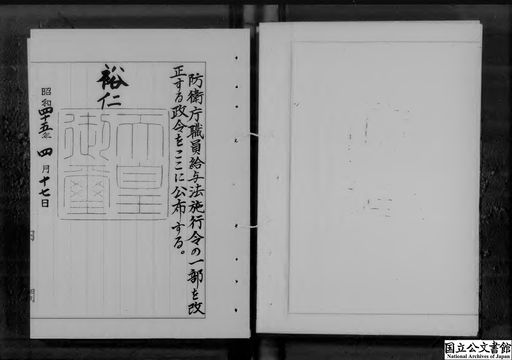 防衛庁職員給与法施行令の一部を改
正する政令をここに公布する。
裕仁
天皇
御璽
昭和四十五年四月十七日
国立公文書館
National Archives of Japan